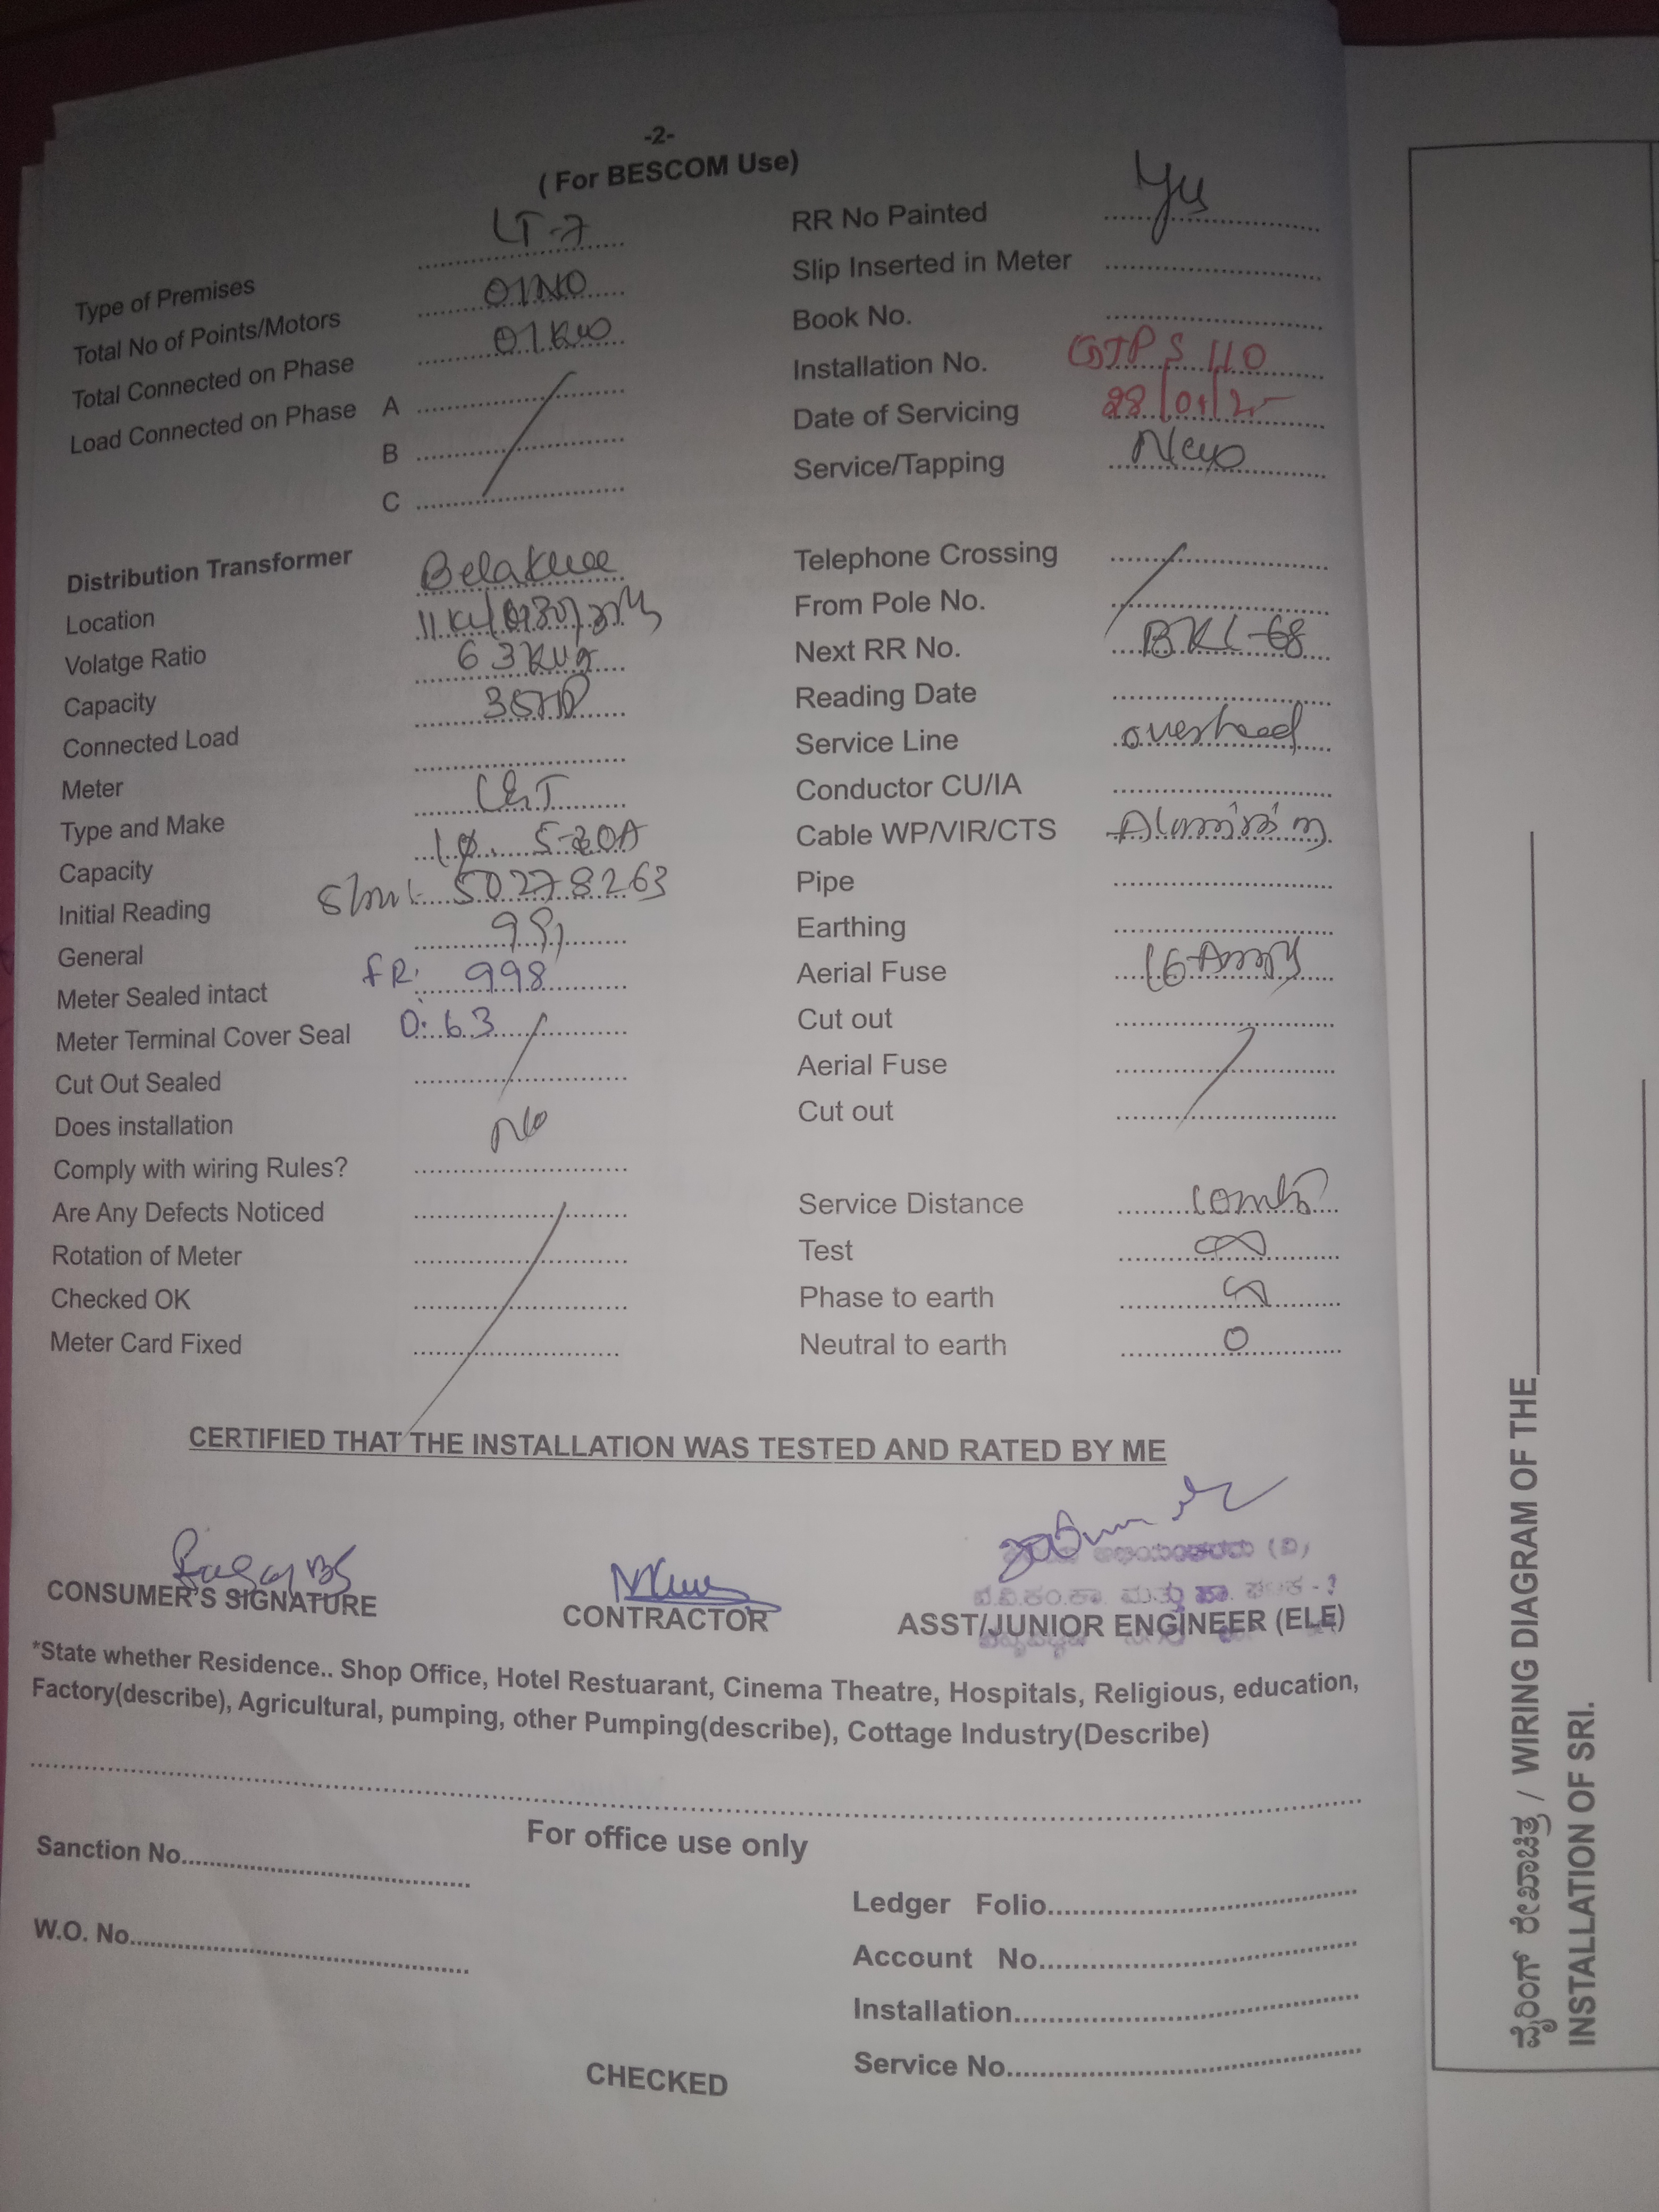 -2-
( For BESCOM Use)
LT-7
Type of Premises
01NO
Total No of Points/Motors
01KW
Total Connected on Phase
Load Connected on Phase A
B
C
Distribution Transformer
Location
Volatge Ratio
63KVA
Capacity
35HP
Connected Load
Meter
L&T
Type and Make
1Ø. 5-30A
Capacity
50278263
Initial Reading
General
FR: 998
Meter Sealed intact
0.63
Meter Terminal Cover Seal
Cut Out Sealed
Does installation
No
Comply with wiring Rules?
Are Any Defects Noticed
Rotation of Meter
Checked OK
Meter Card Fixed
RR No Painted Yes
Slip Inserted in Meter
Book No.
Installation No. 110
Date of Servicing
Service/Tapping New
Telephone Crossing
From Pole No.
Next RR No. BKL-68
Reading Date
Service Line overhead
Conductor CU/IA
Cable WP/VIR/CTS
Pipe
Earthing
Aerial Fuse
Cut out
Aerial Fuse
Cut out
Service Distance
Test
Phase to earth
Neutral to earth 0
CERTIFIED THAT THE INSTALLATION WAS TESTED AND RATED BY ME
CONSUMER'S SIGNATURE
CONTRACTOR
ASST/JUNIOR ENGINEER (ELE)
*State whether Residence.. Shop Office, Hotel Restuarant, Cinema Theatre, Hospitals, Religious, education,
Factory(describe), Agricultural, pumping, other Pumping(describe), Cottage Industry(Describe)
For office use only
Sanction No.
W.O. No.
Ledger Folio
Account No.
Installation
Service No.
CHECKED
ವೈರಿಂಗ್ ರೇಖಾಚಿತ್ರ / WIRING DIAGRAM OF THE
INSTALLATION OF SRI.